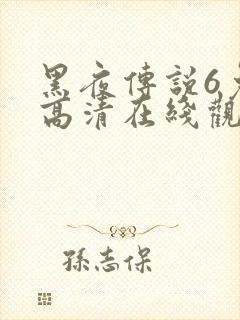 黑夜傳說6免
高清在綫觀
孫志保